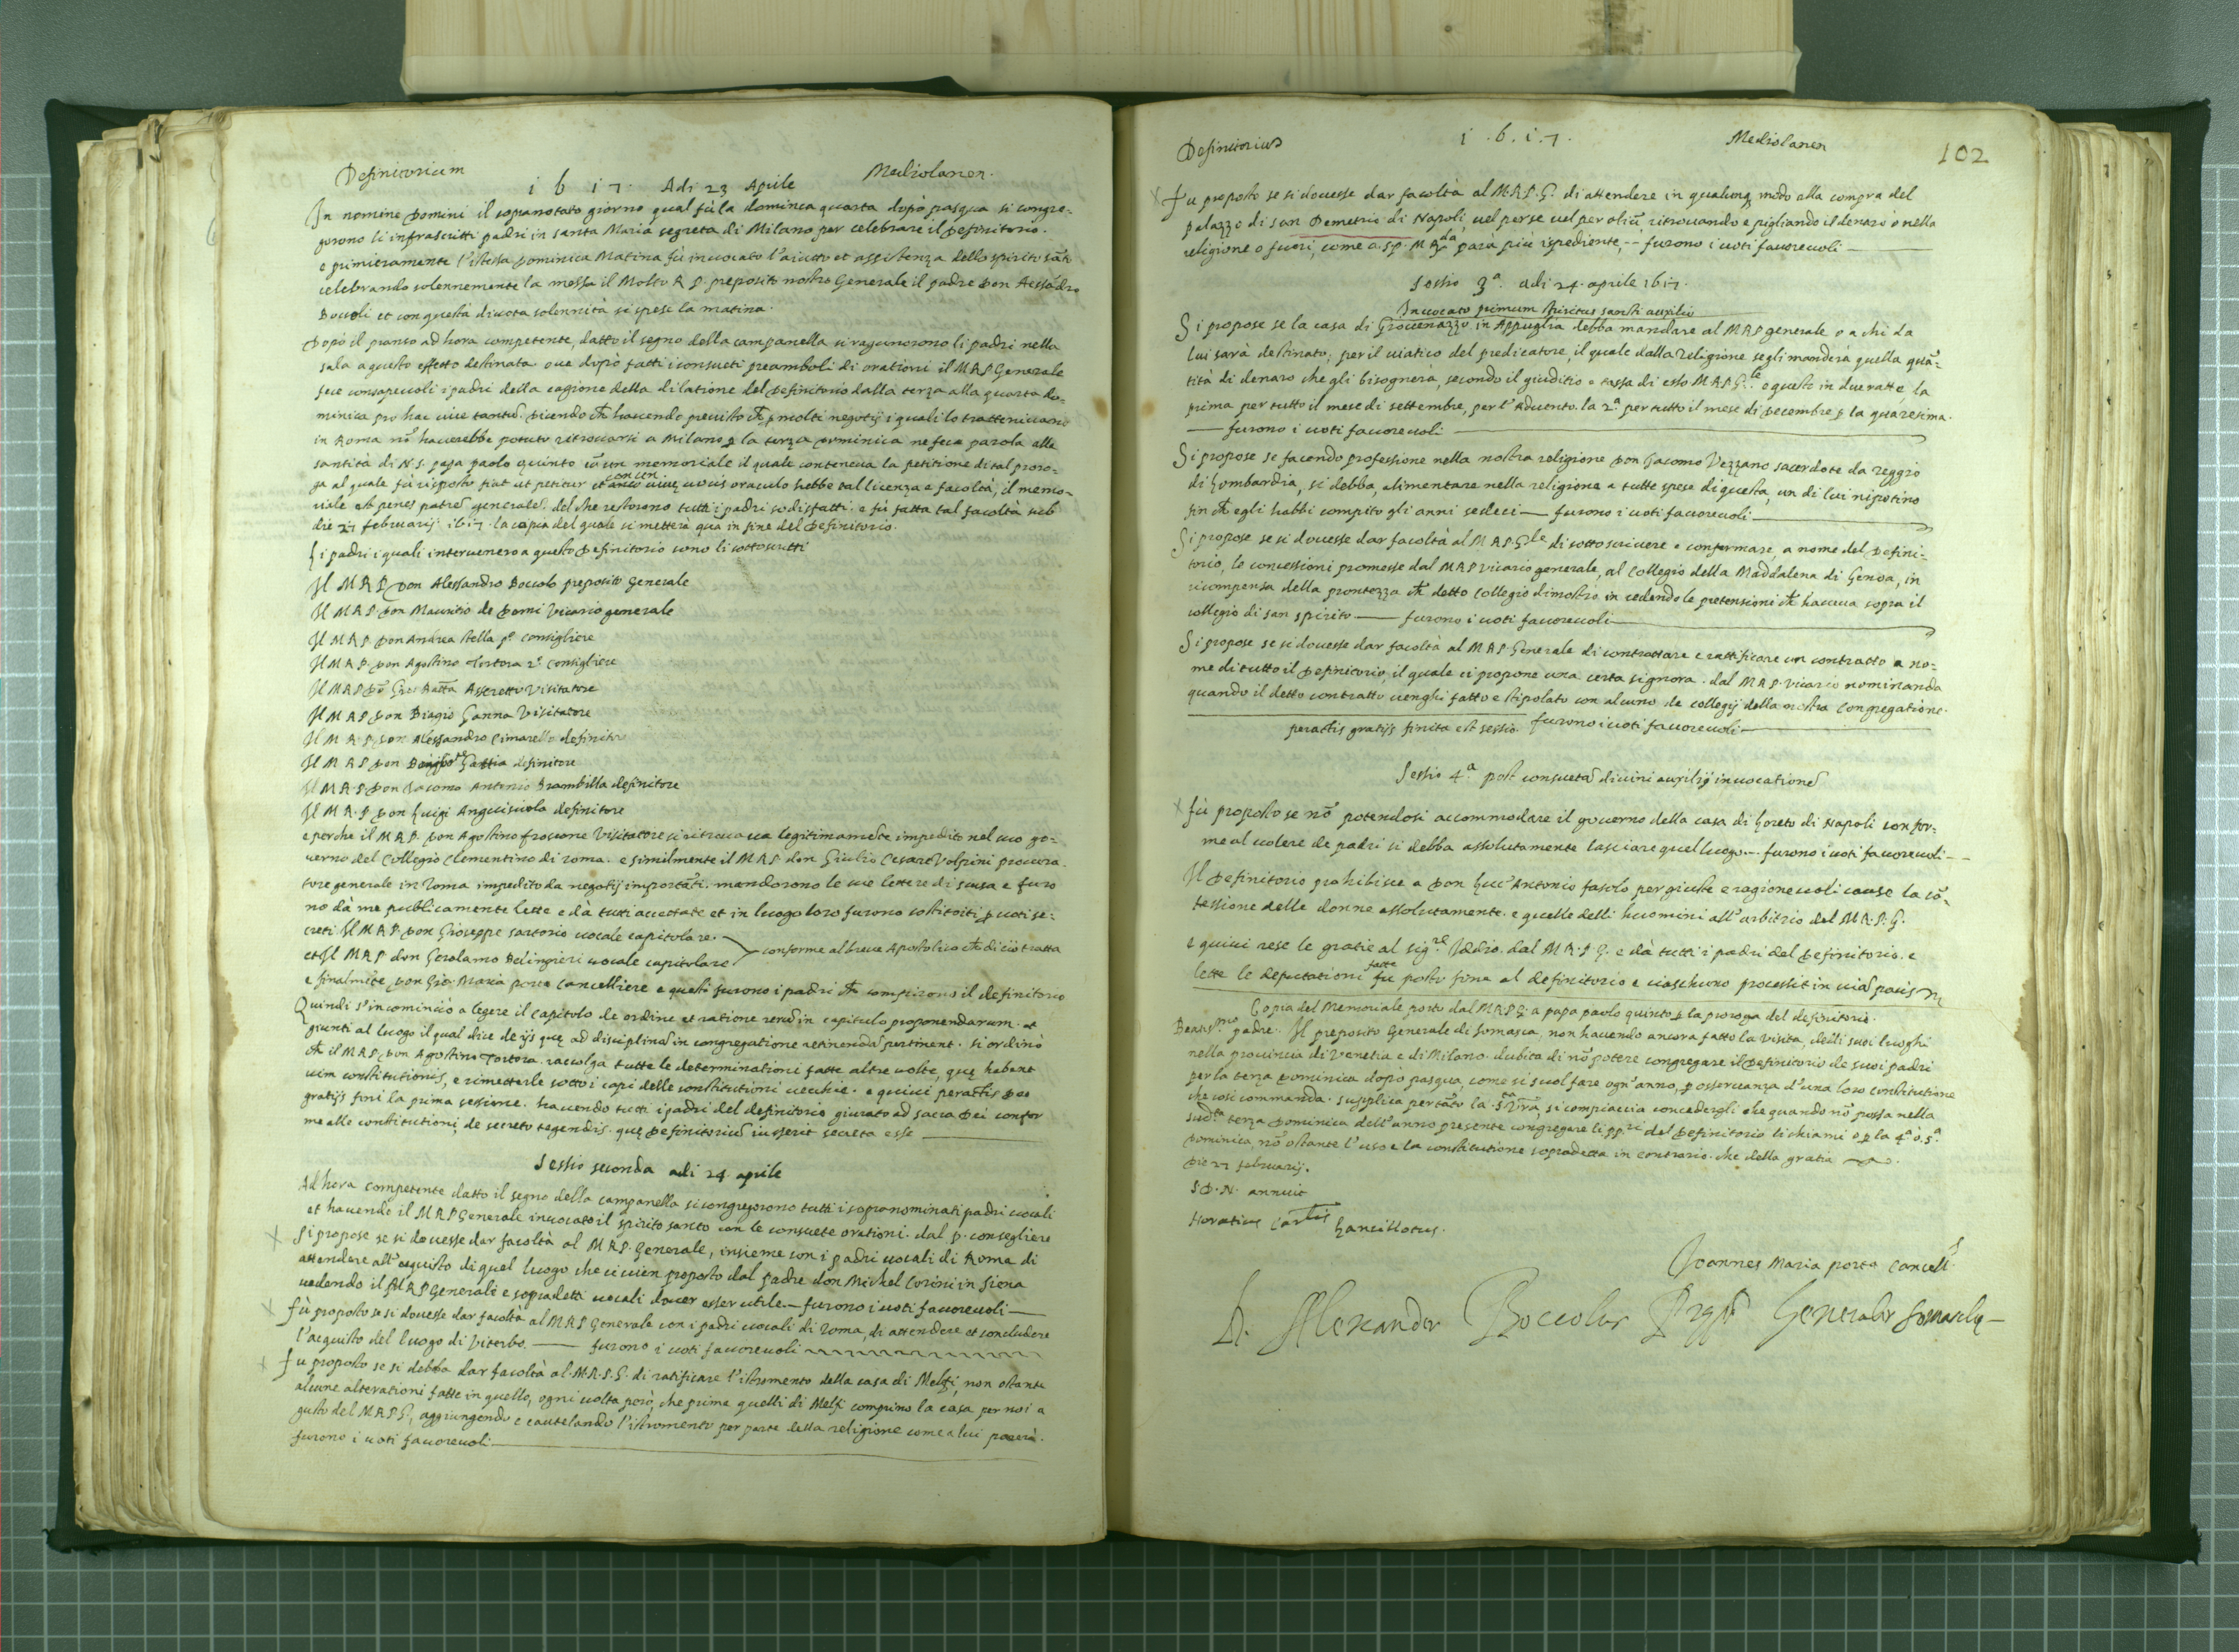 Definitorium Mediolanen.
1617. Adi 23 Aprile
In nomine Domini il sopranotato giorno qual fù la dominica quarta dopò pasqua si congre-
gorono li infrascritti padri in santa Maria segreta di Milano per celebrare il Definitorio.
e primieramente l'istessa Dominica Matina fù invocato l'aiutto et assistenza dello spirito sāto
celebrando solennemente la messa il Molto R P. preposito nostro Generale il padre Don Alessādro
Boccoli et con questa divota solennità si spese la matina.
Dopò il pranso ad hora competente, datto il segno della campanella si ragunorono li padri nella
sala a questo effetto destinata ove dopò fatti i consueti preamboli di orationi il M R P Generale
fece consapevoli i padri della cagione della dilatione del Definitorio dalla terza alla quarta do-
minica pro hac vice tantū. Dicendo ch̄ havendo previsto ch̄ p molti negotij i quali lo trattenivano
in Roma nō haverebbe potuto ritrovarsi a Milano p la terza Dominica ne fece parola alla
santità di N.S. papa paolo quinto cū un memoriale il quale conteneva la petitione di tal proro-
ga al quale fù risposto fiat ut petitur et con un vivę vocis oraculo hebbe tal licenza e facoltà, il memo-
riale est penes patrē generalē. del che restorono tutti i padri sodisfatti. e fù fatta tal facoltà sub
die 27 februarij 1617. la copia del quale si metterà quà in fine del Definitorio.
Li padri i quali intervenero a questo Definitorio sono li sottoscritti
Il M R P Don Alessandro Boccolo preposito Generale
Il M R P Don Mauritio de Domi Vicario generale
Il M R P Don Andrea stella p.º Consigliere
Il M R P Don Agostino Tortora 2.º Consigliere
Il M R P Dō Gio: Batta Asseretto Visitatore
Il M R P Don Biagio Ganna Visitatore
Il M R P Don Alessandro Cimarello definitor
Il M R P Don definitore
Il M R P Don Iacomo Antonio Brambilla definitore
Il M R P Don Luigi Anguisciola definitore
e perche il M R P. Don Agostino froscone Visitatore si ritrovava legitimamēte impedito nel suo go-
verno del Collegio Clementino di roma. e similmente il M R P don Giulio Cesare Volpini procura-
tore generale in roma impedito da negotij importāti. mandorono le sue lettere di scusa e furo
no dà me publicamente lette e dà tutti accettate et in luogo loro furono sostituiti p voti se-
creti Il M R P Don Gioseppe sartorio vocale capitolare.
et Il M R P don Gerolamo Belingieri vocale capitolare conforme al breve Apostolico ch̄ di ciò tratta
e finalmēte Don Gio: Maria porta Cancelliere e questi furono i padri ch̄ compirono il definitorio
Quindi s'incominciò a legere il capitolo de ordine et ratione rerū in capitulo proponendarum. et
giunti al luogo il qual dice de ijs quę ad disciplinā in congregatione retinendā pertinent. si ordinò
ch̄ il M R P Don Agostino Tortora raccolga tutte le determinationi fatte altre volte, quę habent
vim constitutionis, e rimetterle sotto i capi delle constitutioni vecchie. e quivi peractis Deo
gratijs finì la prima sessione. havendo tutti i padri del definitorio giurato ad sacra Dei confor
me alle constitutioni de secreto tegendis. quę Definitoriū iusserit secreta esse
Sessio seconda adi 24 aprile
Ad hora competente datto il segno della campanella si congregorono tutti i sopranominati padri vocali
et havendo il M R P Generale invocato il spirito santo con le consuete orationi. dal p. consegliere
Si propose se si dovesse dar facoltà al M R P. Generale, insieme con i padri vocali di Roma di
attendere all'acquisto di quel luogo che ci vien proposto dal padre don Michel Corini in Siena
vedendo il M R P Generali e sopradetti vocali dover esser utile – furono i voti favorevoli
Fù proposto se si dovesse dar facoltà al M R P Generale con i padri vocali di roma, di attendere et concludere
l'acquisto del luogo di Viterbo. furono i voti favorevoli
Fu proposto se si debba dar facoltà al M.R.P.G. di ratificare l'istromento della casa di Melfi, non ostante
alcune alterationi fatte in quello, ogni volta però, che prima quelli di Melfi comprino la casa per noi a
gusto del M R P G, aggiungendo e cautelando l'istromento per parte della religione come a lui parerà.
furono i voti favorevoli
Definitoriū 1.6.1.7. Mediolanen 102
Fu proposto se si dovesse dar facoltà al M.R.P.G. di attendere in qualunq modo alla compra del
palazzo di san Demetrio di Napoli, vel per se vel per aliū, ritrovando e pigliando il denaro ò nella
religione o fuori, come a S.P. M Rda parà più ispediente, -- furono i voti favorevoli
Sessio 3.a adi 24. aprile 1617.
Invocato primum spiritus sancti auxilio
Si propose se la casa di Giovenazzo in Appuglia debba mandare al M R P generale o a chi da
lui sarà destinato, per il viatico del predicatore, il quale dalla religione se gli manderà quella quā-
tità di denaro che gli bisognerà, secondo il giuditio e tassa di esso M R P G.le e questo in due ratte, la
prima per tutto il mese di settembre, per l'Advento. la 2.a per tutto il mese di Decembre p la quaresima.
furono i voti favorevoli
Si propose se facendo professione nella nostra religione Don Iacomo Vezzano sacerdote da reggio
di Lombardia, si debba, alimentare nella religione a tutte spese di questa, un di lui nipotino
fin ch̄ egli habbi compito gli anni sedeci — furono i voti favorevoli
Si propose se si dovesse dar facoltà al M R P Gle di sottoscrivere e confermare, a nome del Defini-
torio, le concessioni promesse dal M R P vicario generale, al Collegio della Maddalena di Genoa, in
ricompensa della prontezza ch̄ detto Collegio dimostrò in cedendo le pretensioni ch̄ haveva sopra il
collegio di san spirito — furono i voti favorevoli
Si propose se si dovesse dar facoltà al M R P Generale di contrattare e ratificare un contratto a no-
me di tutto il Definitorio, il quale ci propone una certa signora. dal M R P. vicario nominanda
quando il detto contratto venghi fatto e stipolato con alcuno de collegij della nostra Congregatione.
peractis gratijs finita est sessio furono i voti favorevoli
Sessio 4.a post consuetā divini auxilij invocationē
Fù proposto se nō potendosi accommodare il governo della casa di Loreto di Napoli confor-
me al volere de padri si debba assolutamente lasciare quel luogo.-. furono i voti favorevoli--
Il Definitorio prohibisce a Don Luc'Antonio fasolo per giuste e ragionevoli cause la cō-
fessione delle donne assolutamente. e quelle delli huomini all'arbitrio del M.R.P.G.
e quivi rese le gratie al sig.re Iddio. dal M.R.P.G. e dà tutti i padri del Definitorio. e
lette le deputationi fatte fu posto fine al definitorio e ciaschuno processit in viā pacis
Copia del Memoriale porto dal M R P G. a papa paolo quinto p la proroga del definitorio.
Beatis.mo padre. Il preposito Generale di Somasca, non havendo ancora fatto la visita, delli suoi luoghi
nella provincia di Venetia e di Milano. dubita di nō potere congregare il Definitorio de suoi padri
per la terza Dominica dopò pasqua, come si suol fare ogn'anno, p osservanza d'una loro constitutione
che così commanda. supplica pertāto la S.tà Vra, si compiaccia concedergli che quando nō possa nella
sud.ta terza Dominica dell'anno presente congregare li pp.ri del Definitorio li chiami o p la 4.a ò. 5.a
Dominica nō ostante l'uso e la constitutione sopradetta in contrario. che della gratia
Die 27 februarij.
S.D.N. annuit
Horatius Car.lis Lancillotus.
Joannes Maria porta Cancell.s
D. Alexander Boccolus Generalis Somaschę